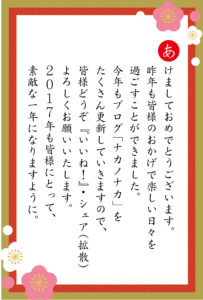 あけましておめでとうございます。
昨年も皆様のおかげで楽しい日々を
過ごすことができました。
今年もブログ「ナカノナカ」を
たくさん更新していきますので、
皆様どうぞ『いいね！』・シェア（拡散）
よろしくお願いいたします。
２０１７年も皆様にとって、
素敵な一年になりますように。